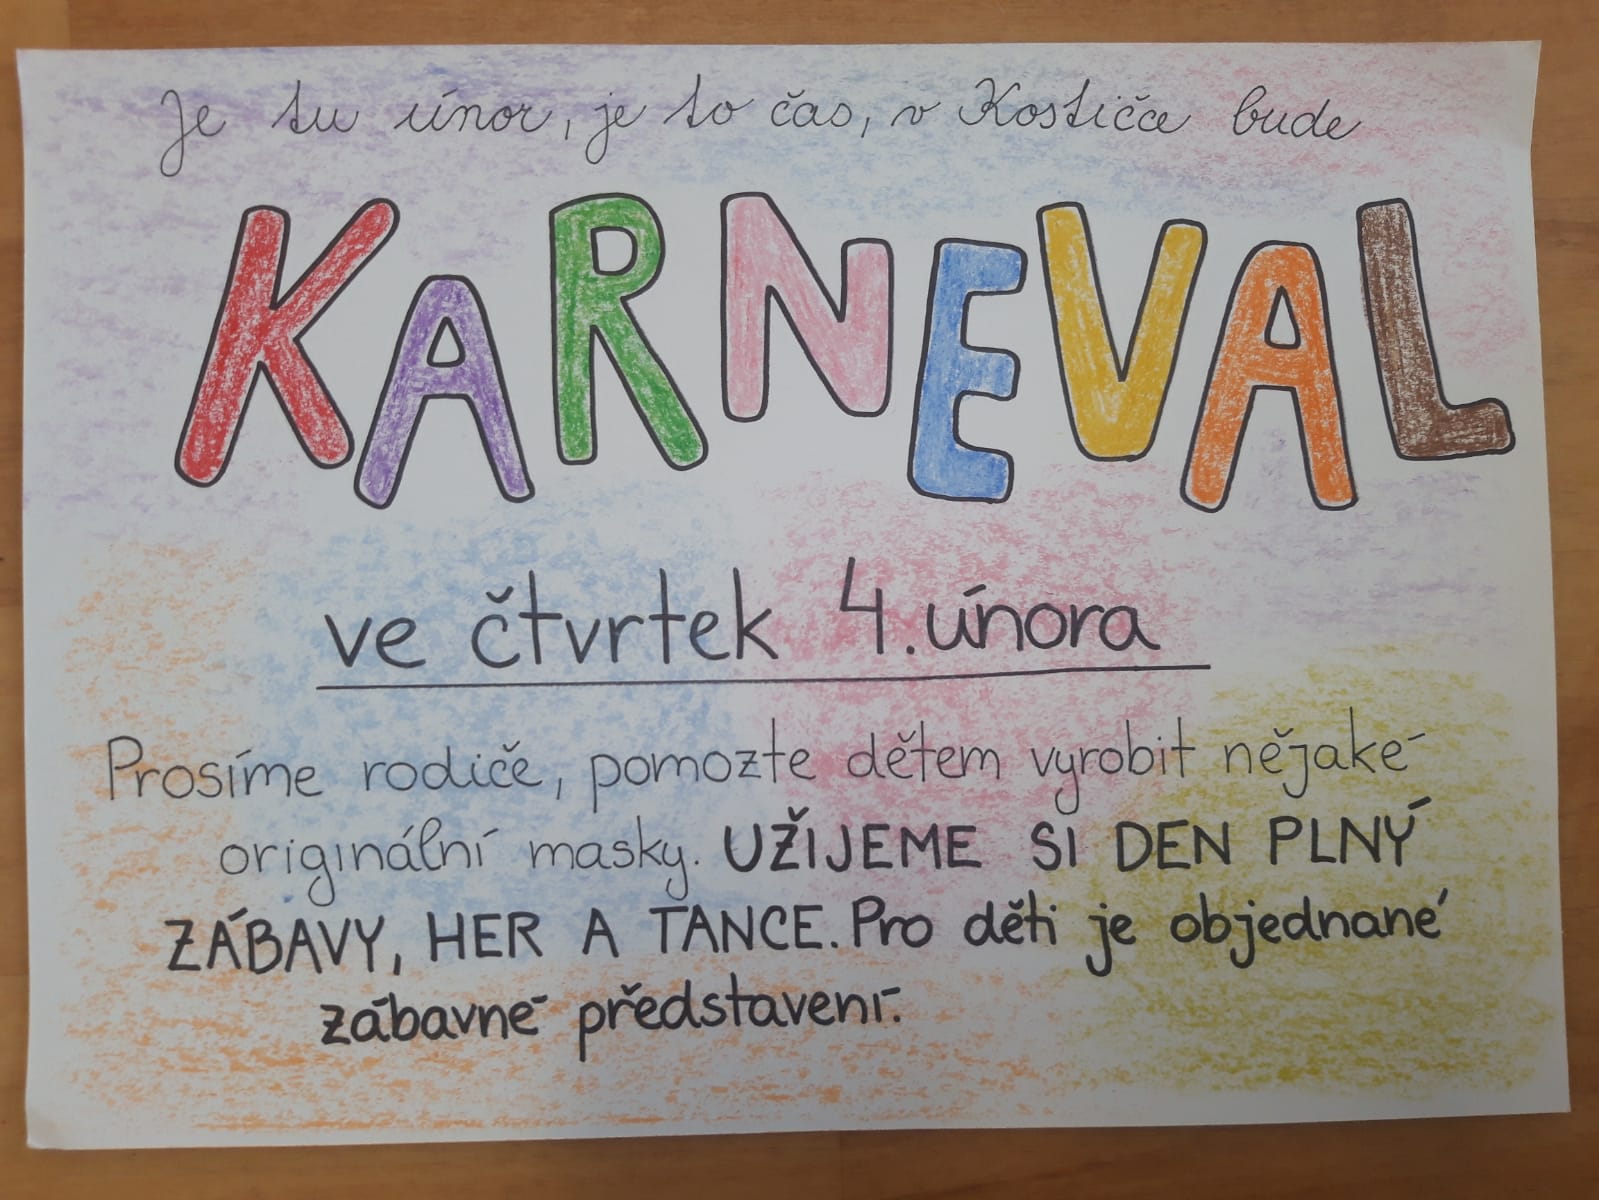 Je tu únor, je to čas, v Kostičce bude
KARNEVAL
ve čtvrtek 4. února
Prosíme rodiče, pomozte dětem vyrobit nějaké
originální masky. UŽIJEME SI DEN PLNÝ
ZÁBAVY, HER A TANCE. Pro děti je objednané
zábavné představení.